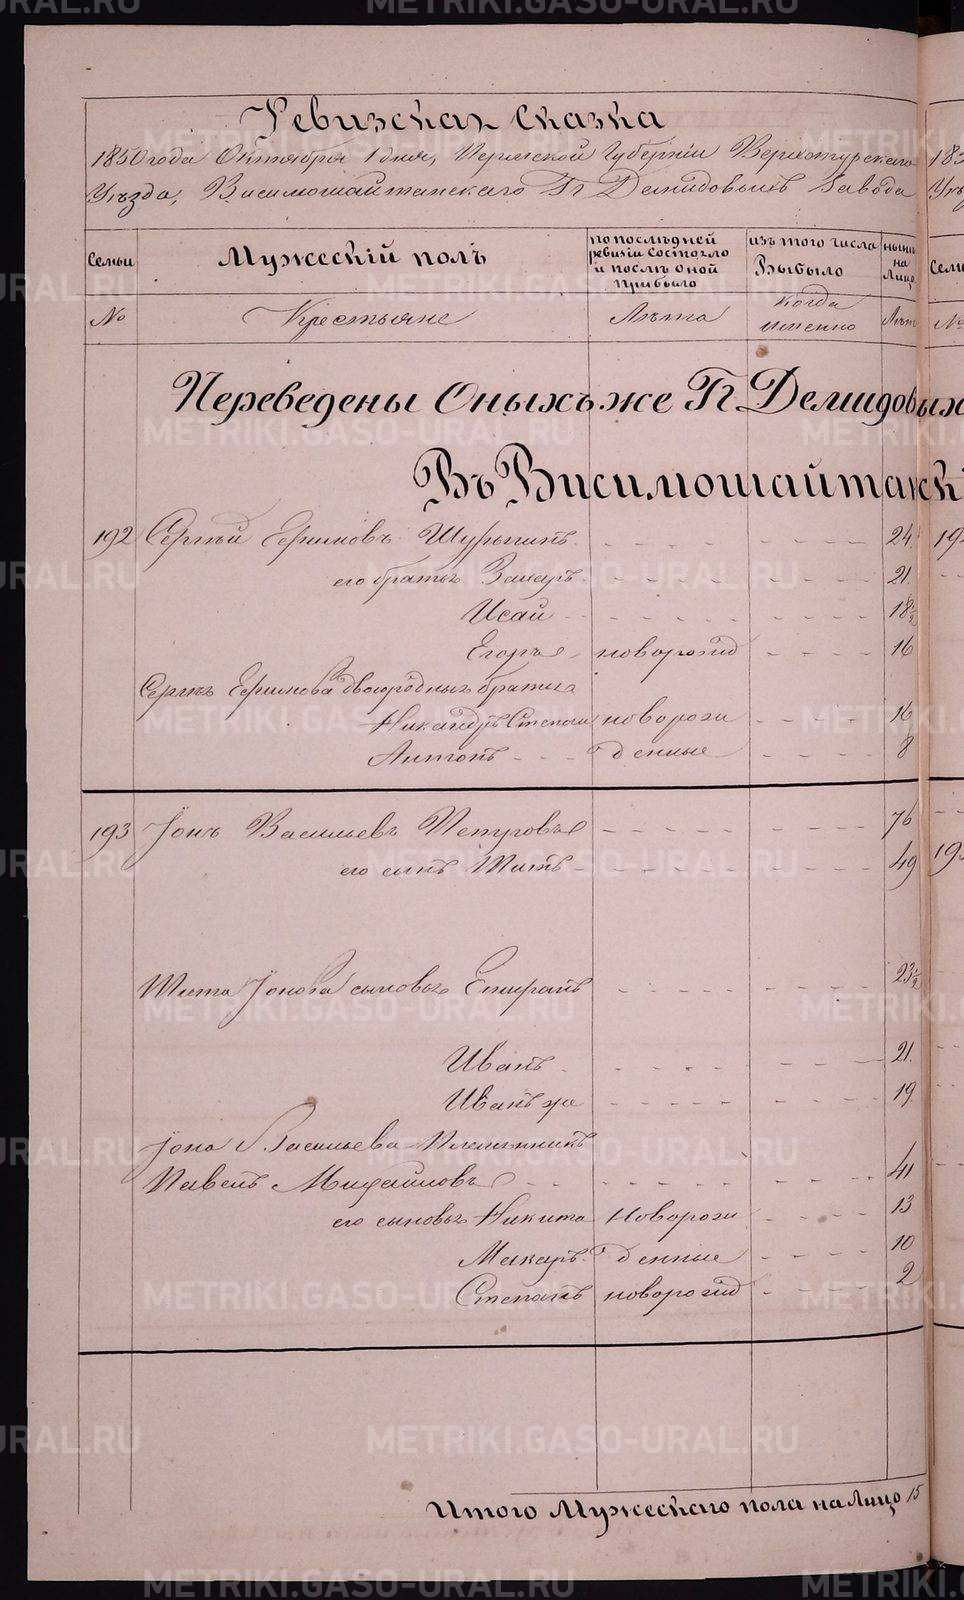 Ревизская сказка
1850 года Октября 1 дня, Пермской Губернии Верхотурскаго
Уѣзда, Висимошайтанскаго Гг Демидовыхъ Завода
Семьи
Мужескій полъ
по послѣдней ревизіи Состояло и послѣ оной прибыло
изъ того числа Выбыло
нынѣ на Лицо
№
Крестьяне
Лѣта
когда именно
Лѣт
Переведены Оныхъ же Гг Демидовых
Въ Висимошайтанскі
192 Сергѣй Ефимовъ 24
его братья Захаръ 21
Исай 18½
Егоръ новорожд 16
Сергѣя Ефимова двоюродныя братья
Никандръ Степан новорож 16
Антонъ денные 8
193 Іонъ Васильевъ Петровъ 76
его сынъ Титъ 49
Тита Іонова сыновья 23½
Иванъ 21
Иванъ же 19
Іона Васильева племянникъ
Павелъ Михайловъ 41
его сыновья Никита Новорож 13
Макаръ денные 10
Степанъ новорожд 2
Итого Мужескаго пола на Лицо 15
METRIKI.GASO-URAL.RU